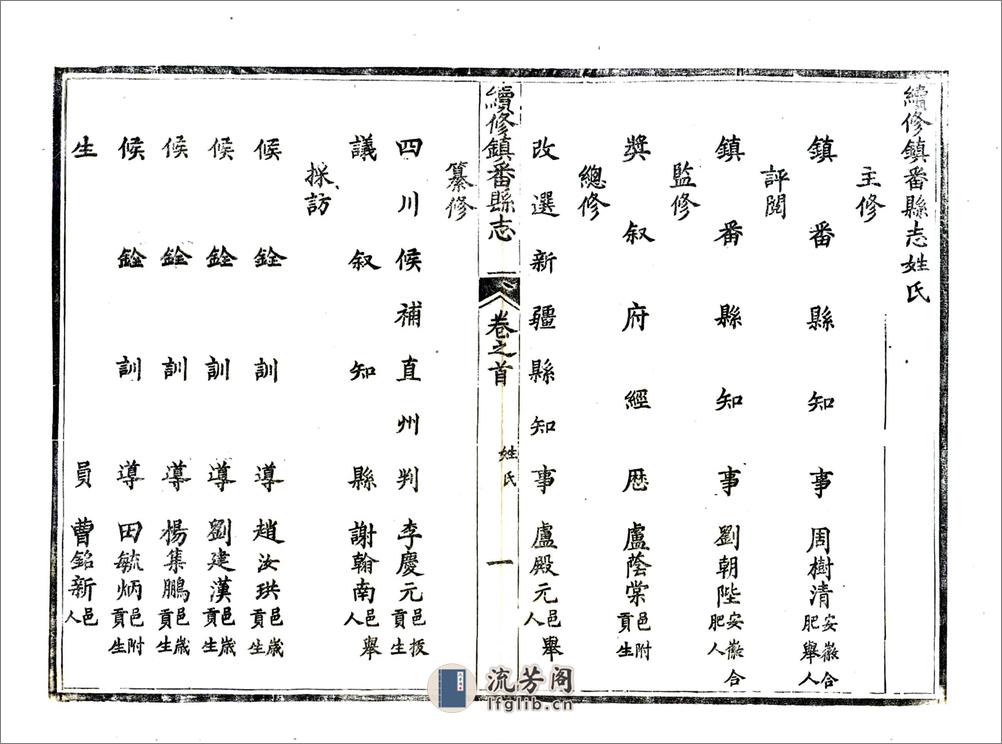 續修鎮番縣志姓氏
主修
鎮番縣知事周樹清安徽合肥舉人
評閱
鎮番縣知事劉朝陛安徽合肥人
監修
獎叙府經歷盧蔭棠邑附貢生
總修
改選新疆縣知事盧殿元邑舉人
續修鎮番縣志 卷之首 姓氏 一
纂修
四川候補直州判李慶元邑拔貢生
議叙知縣謝翰南邑舉人
採訪
候銓訓導趙汝珙邑歲貢生
候銓訓導劉建漢邑歲貢生
候銓訓導楊集鵬邑歲貢生
候銓訓導田毓炳邑附貢生
生員曹銘新邑人
流芳阁
lfglib.cn